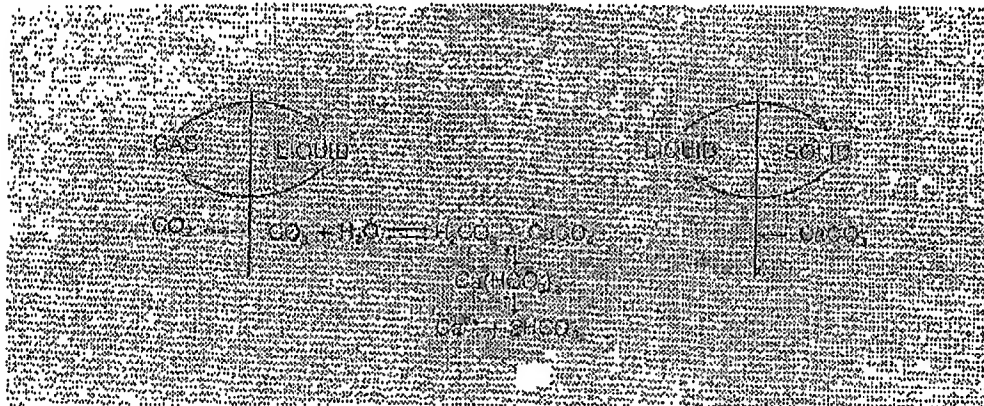 GAS LIQUID LIQUID SOLID
CO₂ CO₂ + H₂O ⇌ H₂CO₃ + CaCO₃ CaCO₃
Ca(HCO₃)₂
Ca²⁺ + 2HCO₃